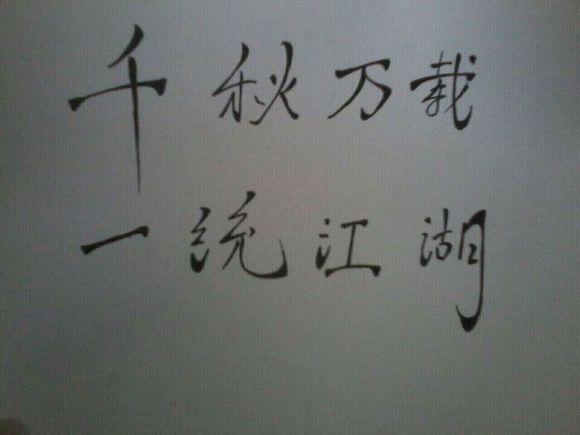 千秋万栽
一统江湖